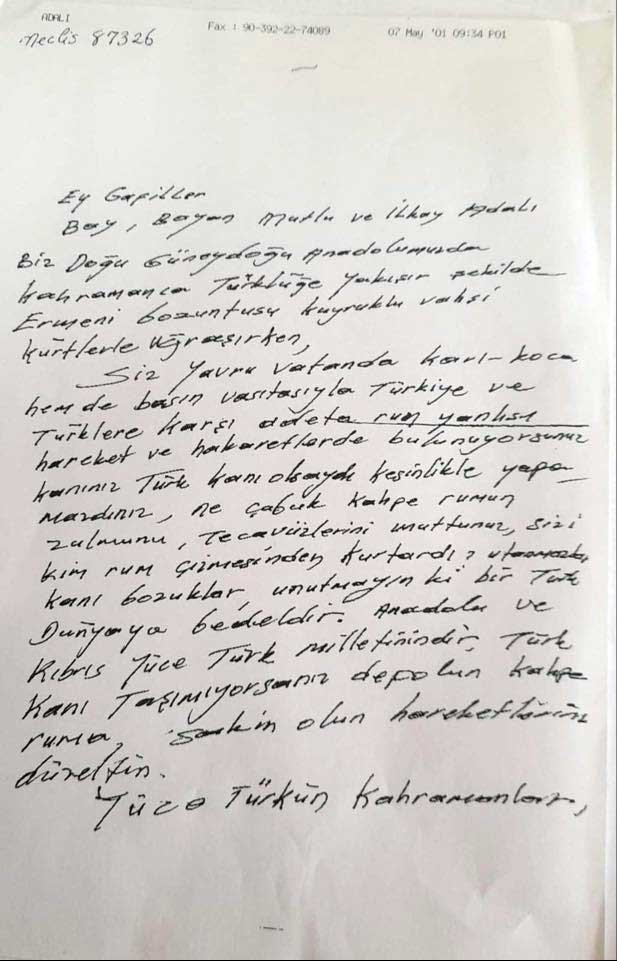 ADALI
Fax : 90-392-22-74089 07 May '01 09:34 P01
Meclis 87326
Ey Gafiller
Bay, Bayan Mutlu ve İlkay Adalı
Biz Doğu Güneydoğu Anadolumuzda
kahramanca Türklüğe yakışır şekilde
Ermeni bozuntusu kuyruklu vahşi
kürtlerle uğraşırken,
Siz Yavru vatanda karı-koca
hem de basın vasıtasıyla Türkiye ve
Türklere karşı adeta rum yanlısı
hareket ve hakaretlerde bulunuyorsunuz
kanınız Türk kanı olsaydı kesinlikle yapa-
mazdınız, ne çabuk kahpe rumun
zulmunu, Tecavüzlerini unuttunuz, sizi
kim rum çizmesinden kurtardı? utanmazlar
kanı bozuklar, unutmayın ki bir Türk
Dünyaya bedeldir. Anadolu ve
Kıbrıs Yüce Türk milletinindir, Türk
kanı Taşımıyorsanız depolun kahpe
ruma, Sakin olun hareketlerinizi
düzeltin.
Yüce Türkün Kahramanları,